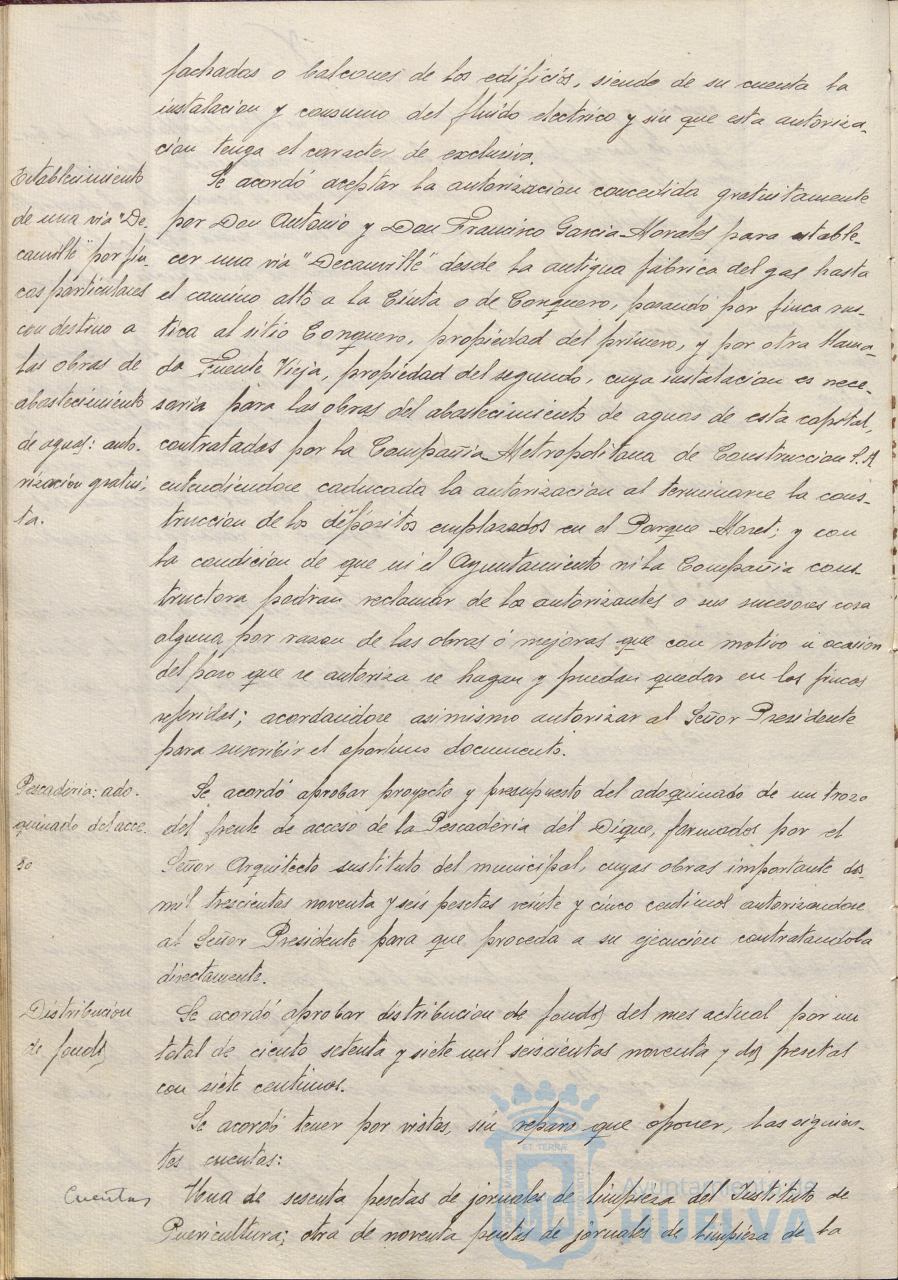 fachadas o balcones de los edificios, siendo de su cuenta la
instalacion y consumo del fluido electrico y sin que esta autoriza-
cion tenga el caracter de exclusiva.
Establecimiento
de una via "De-
cauville" por fin-
cas particulares
con destino a
las obras de
abastecimiento
de aguas: auto-
rización gratui-
ta.
Se acordó aceptar la autorización concedida gratuitamente
por Don Antonio y Don Francisco Garcia Morales para estable-
cer una via "Decauville" desde la antigua fábrica del gas hasta
el camino alto a la Cinta o de Conquero, pasando por finca rus-
tica al sitio Conquero, propiedad del primero, y por otra llama-
da Fuente Vieja, propiedad del segundo, cuya instalacion es nece-
saria para las obras del abastecimiento de aguas de esta capital,
contratadas por la Compañia Metropolitana de Construccion S.A
entendiendose caducada la autorizacion al terminarse la cons-
truccion de los depósitos emplazados en el Parque Moret; y con
la condición de que ni el Ayuntamiento ni la Compañia cons-
tructora podran reclamar de los autorizantes o sus sucesores cosa
alguna por razon de las obras ó mejoras que con motivo u ocasion
del paso que se autoriza se hagan y puedan quedar en las fincas
referidas; acordandose asimismo autorizar al Señor Presidente
para suscribir el oportuno documento.
Pescaderia: ado-
quinado del acce-
so
Se acordó aprobar proyecto y presupuesto del adoquinado de un trozo
del frente de acceso de la Pescaderia del Dique, formados por el
Señor Arquitecto sustituto del municipal, cuyas obras importante dos
mil trescientas noventa y seis pesetas veinte y cinco centimos autorizandose
al Señor Presidente para que proceda a su ejecucion contratandola
directamente.
Distribucion
de fondos
Se acordó aprobar distribucion de fondos del mes actual por un
total de ciento setenta y siete mil seiscientas noventa y dos pesetas
con siete centimos.
Se acordó tener por vistas, sin reparo que oponer, las siguien-
tes cuentas:
Cuentas
Una de sesenta pesetas de jornales de limpieza del Instituto de
Puericultura; otra de noventa pesetas de jornales de limpieza de la
Ayuntamiento de
HUELVA